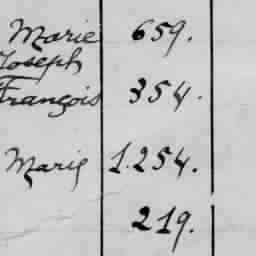 Marie 659.
Joseph
François 354.
Marie 1.254.
219.